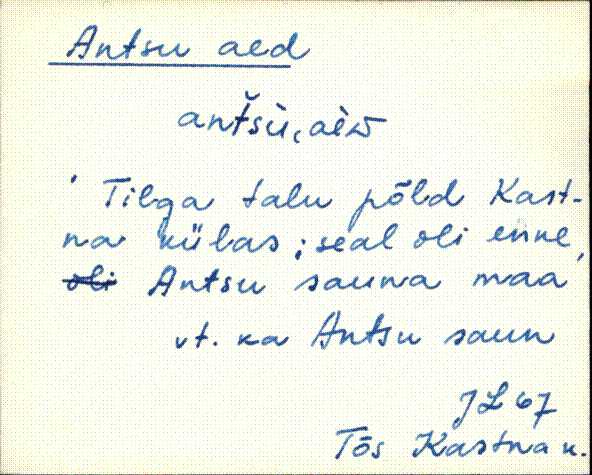 Antsu aed
antšù, aèɒ
' Tilga talu põld Kast-
na külas; seal oli enne
oli Antsu sauna maa'
vt. ka Antsu saun
JL 67
Tõs Kastna k.